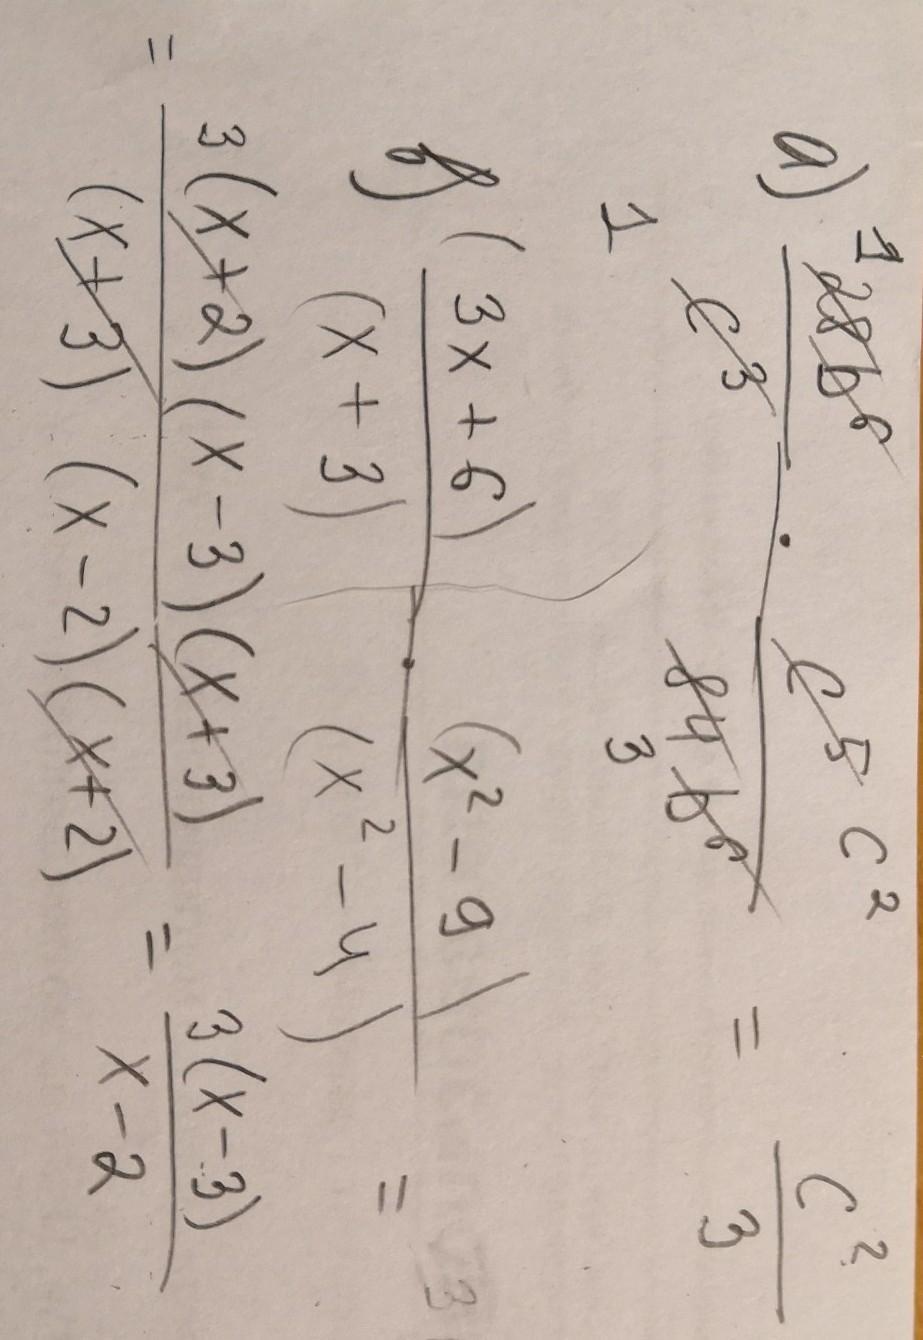 a) 1 28b⁶ / c³ · c⁵ c² / 84b⁶ = c² / 3
1 3
б) (3x + 6) / (x + 3) · (x² - 9) / (x² - 4) =
= 3(x+2)(x-3)(x+3) / (x+3)(x-2)(x+2) = 3(x-3) / x-2